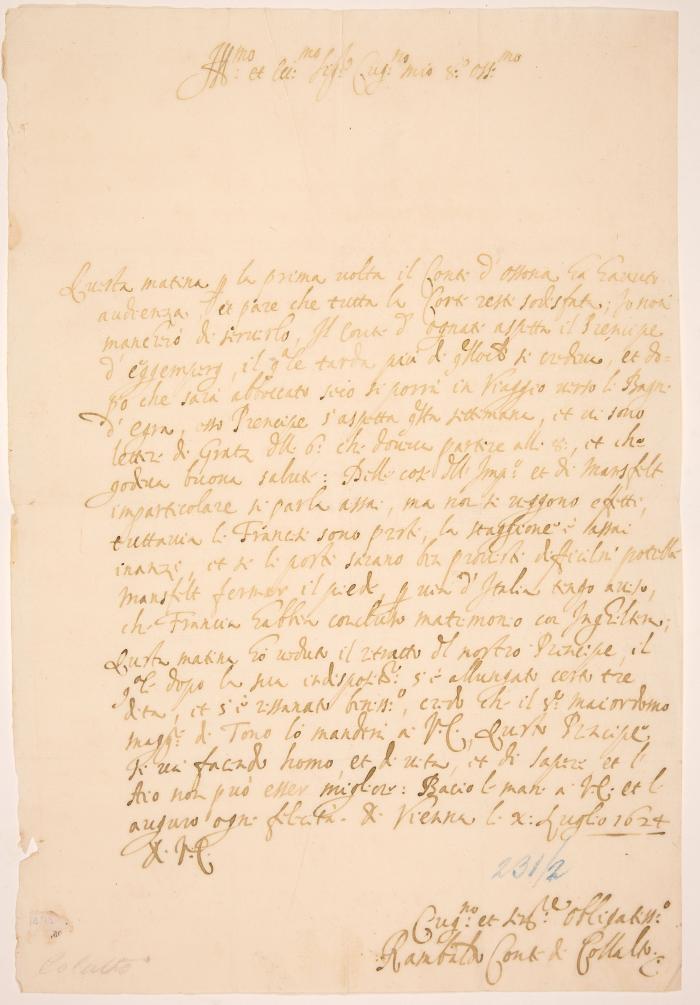 Ill:mo et Ecc:mo Sig:r Cug:no mio S:r Oss:mo
Questa matina p la prima volta il Conte d'Ossona ha havuto
audienza et pare che tutta la Corte resti sodisfata; Io non
mancherò di servirlo, Il conte d'Ognate aspetta il Prencipe
d'Eggemperg, il q.le tarda più di q.llo ch si credeva, et do=
po che sarà abbocato seco si porrà in Viaggio verso li Bagni
d'Egra, esso Prencipe s'aspetta q.sta settimana, et vi sono
lettere di Gratz dell 6: che doveva partire alli 8:, et che
godeva buona salute: Delle cose dell Imp:o et di Mansfelt
imparticolare si parla assai, ma non si veggono efetti,
tuttavia li Francesi sono presti, la staggione è assai
inanzi, et se li porti sarano ben provisti dificilm potrebbe
Mansfelt fermar il piede, p via d'Italia tengo aviso,
che Francia habbia concluso matrimonio con Inghiltera;
Questa matina hò veduto il retratto del nostro Prencipe, il
q.le dopo la sua indisposit: s'è allungato certo tre
dita, et s'è rissanato beniss:o, credo che il S:r maiordomo
magg:re di Tono lo manderà a V.E., Questo Prencipe
si va facendo homo, et di vita, et di sapere et l
Aio non può esser migliore: Bacio le mani a V.E. et le
auguro ogni felicità. Di Vienna li x: Luglio 1624
Di V.E.
231/2
Cug:no et Ser:re Obligatiss:o
Rambaldo Conte di Collalto
Colalto